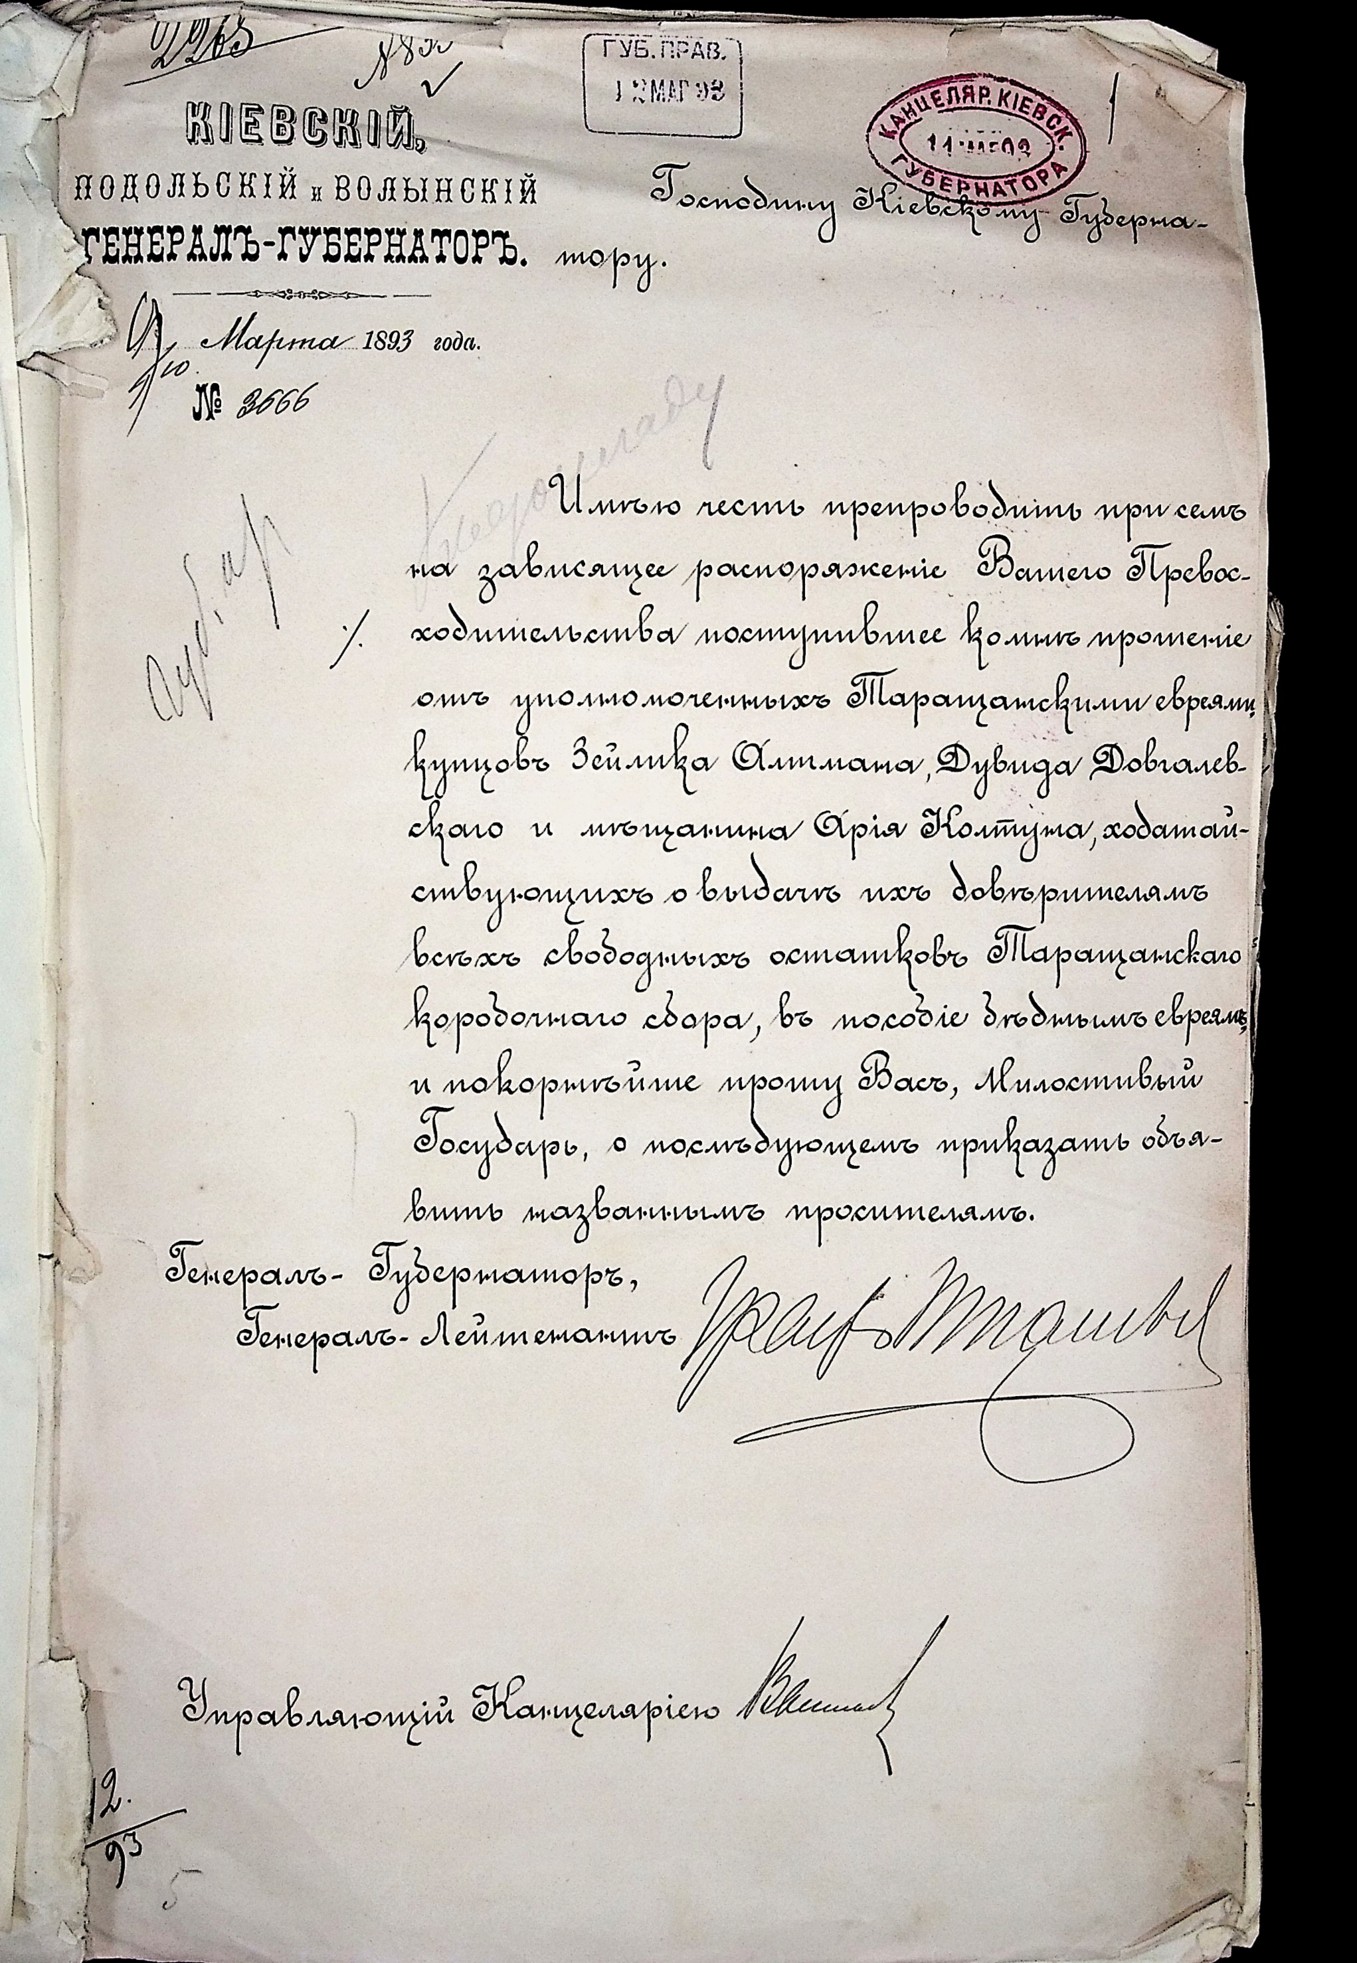 2263
ГУБ. ПРАВ.
12 МАР 93
КАНЦЕЛЯР. КІЕВСК.
11 93
ГУБЕРНАТОРА
1
КІЕВСКІЙ,
ПОДОЛЬСКІЙ и ВОЛЫНСКІЙ
ГЕНЕРАЛЪ-ГУБЕРНАТОРЪ.
Господину Кіевскому Губерна-
тору.
9/10 Марта 1893 года.
№ 3666
Имѣю честь препроводить при семъ
на зависящее распоряженіе Вашего Превос-
ходительства поступившее ко мнѣ прошеніе
отъ уполномоченныхъ Таращанскими евреями,
купцовъ Зейлика Алтмана, Дувида Довгалев-
скаго и мѣщанина Арія Колтуна, ходатай-
ствующихъ о выдачѣ ихъ довѣрителямъ
всѣхъ свободныхъ остатковъ Таращанскаго
коробочнаго сбора, въ пособіе бѣднымъ евреямъ,
и покорнѣйше прошу Васъ, Милостивый
Государь, о послѣдующемъ приказать объя-
вить названнымъ просителямъ.
Генералъ-Губернаторъ,
Генералъ-Лейтенантъ
Управляющій Канцеляріею
12.
93
5